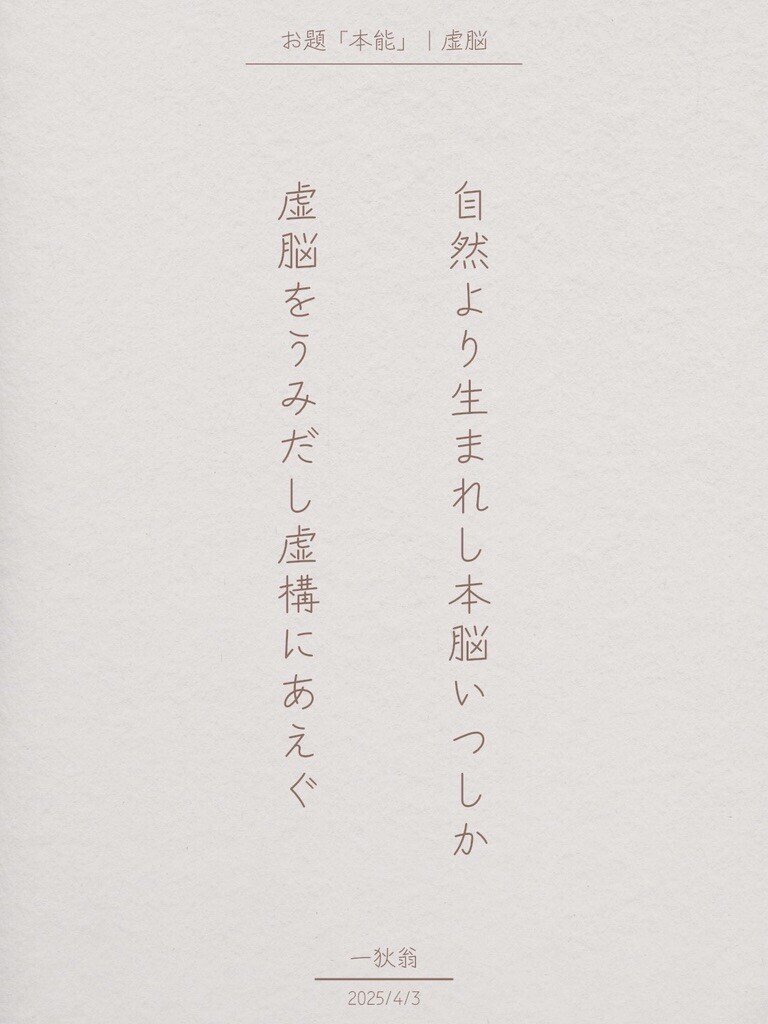 お題「本能」｜虚脳
自然より生まれし本脳いつしか
虚脳をうみだし虚構にあえぐ
一狄翁
2025/4/3